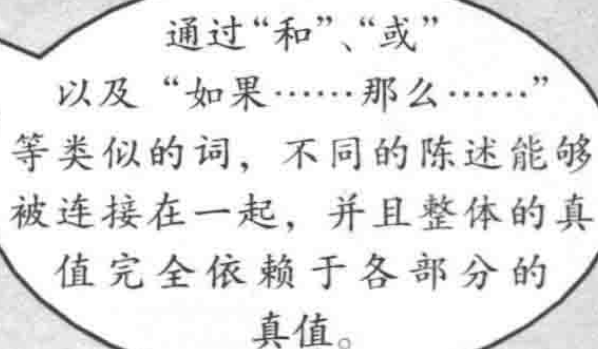 通过“和”、“或”
以及“如果……那么……”
等类似的词，不同的陈述能够
被连接在一起，并且整体的真
值完全依赖于各部分的
真值。